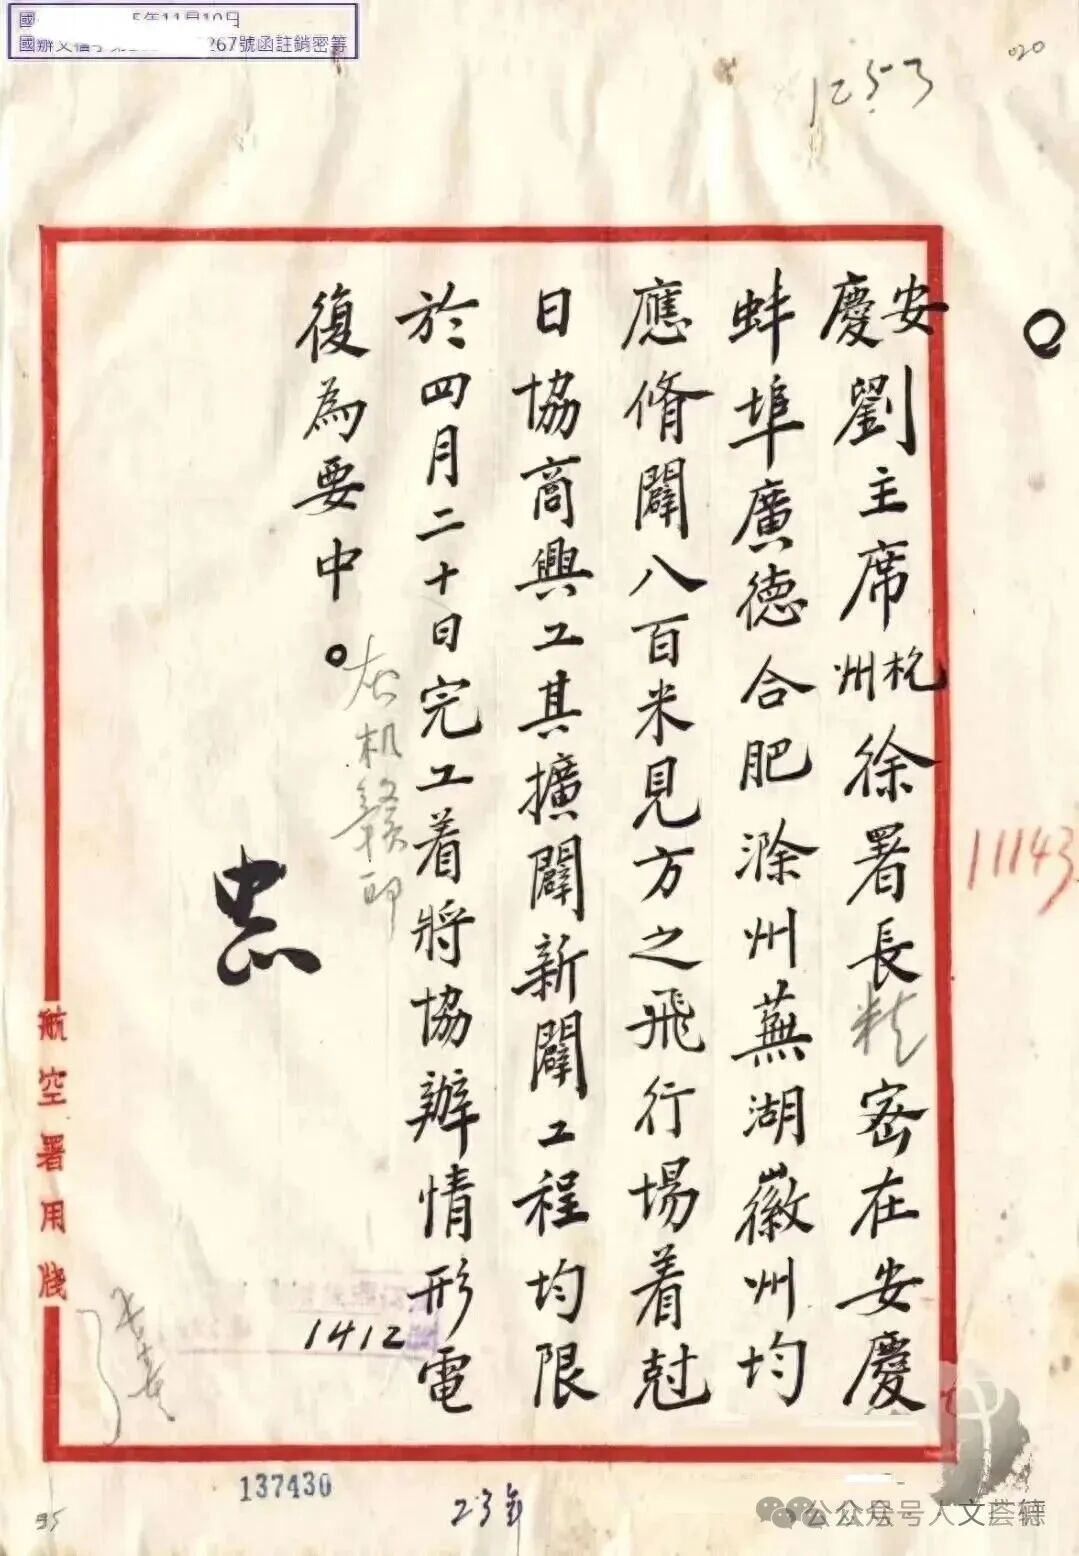 5年11月10日
267號函註銷密等
020
1253
安慶劉主席杭州徐署長 密在安慶
蚌埠廣德合肥滁州蕪湖徽州均
應脩闢八百米見方之飛行場着尅
日協商興工其擴闢新闢工程均限
於四月二十日完工着將協辦情形電
復為要中。
机贛印
忠
11143
1412
航空署用牋
137430
23年
95
公众号·人文荟镡